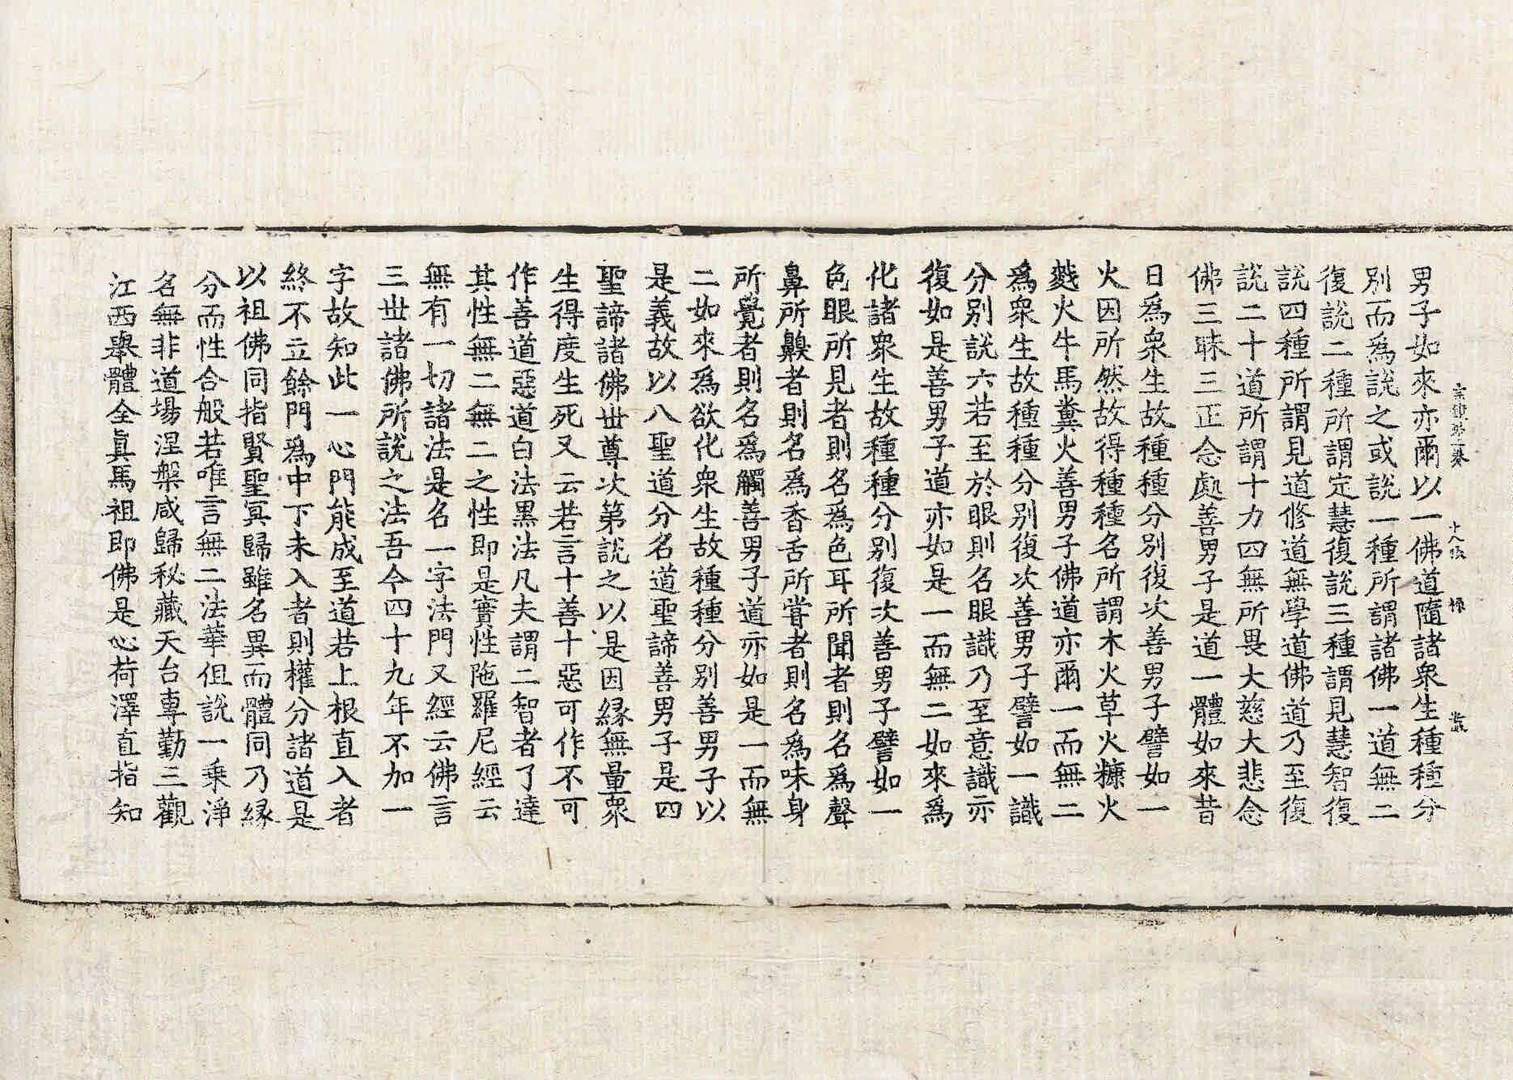 宗鏡第二卷 十八張
男子如來亦爾以一佛道隨諸衆生種種分
別而爲說之或說一種所謂諸佛一道無二
復說二種所謂定慧復說三種謂見慧智復
說四種所謂見道修道無學道佛道乃至復
說二十道所謂十力四無所畏大慈大悲念
佛三昧三正念處善男子是道一體如來昔
日爲衆生故種種分別復次善男子譬如一
火因所然故得種種名所謂木火草火糠火
䴬火牛馬糞火善男子佛道亦爾一而無二
爲衆生故種種分別復次善男子譬如一識
分別說六若至於眼則名眼識乃至意識亦
復如是善男子道亦如是一而無二如來爲
化諸衆生故種種分別復次善男子譬如一
色眼所見者則名爲色耳所聞者則名爲聲
鼻所齅者則名爲香舌所甞者則名爲味身
所覺者則名爲觸善男子道亦如是一而無
二如來爲欲化衆生故種種分別善男子以
是義故以八聖道分名道聖諦善男子是四
聖諦諸佛世尊次第說之以是因緣無量衆
生得度生死又云若言十善十惡可作不可
作善道惡道白法黑法凡夫謂二智者了達
其性無二無二之性即是實性陁羅尼經云
無有一切諸法是名一字法門又經云佛言
三世諸佛所說之法吾今四十九年不加一
字故知此一心門能成至道若上根直入者
終不立餘門爲中下未入者則權分諸道是
以祖佛同指賢聖冥歸雖名異而體同乃緣
分而性合般若唯言無二法華但說一乘淨
名無非道場涅槃咸歸秘藏天台專勤三觀
江西舉體全真馬祖即佛是心荷澤直指知